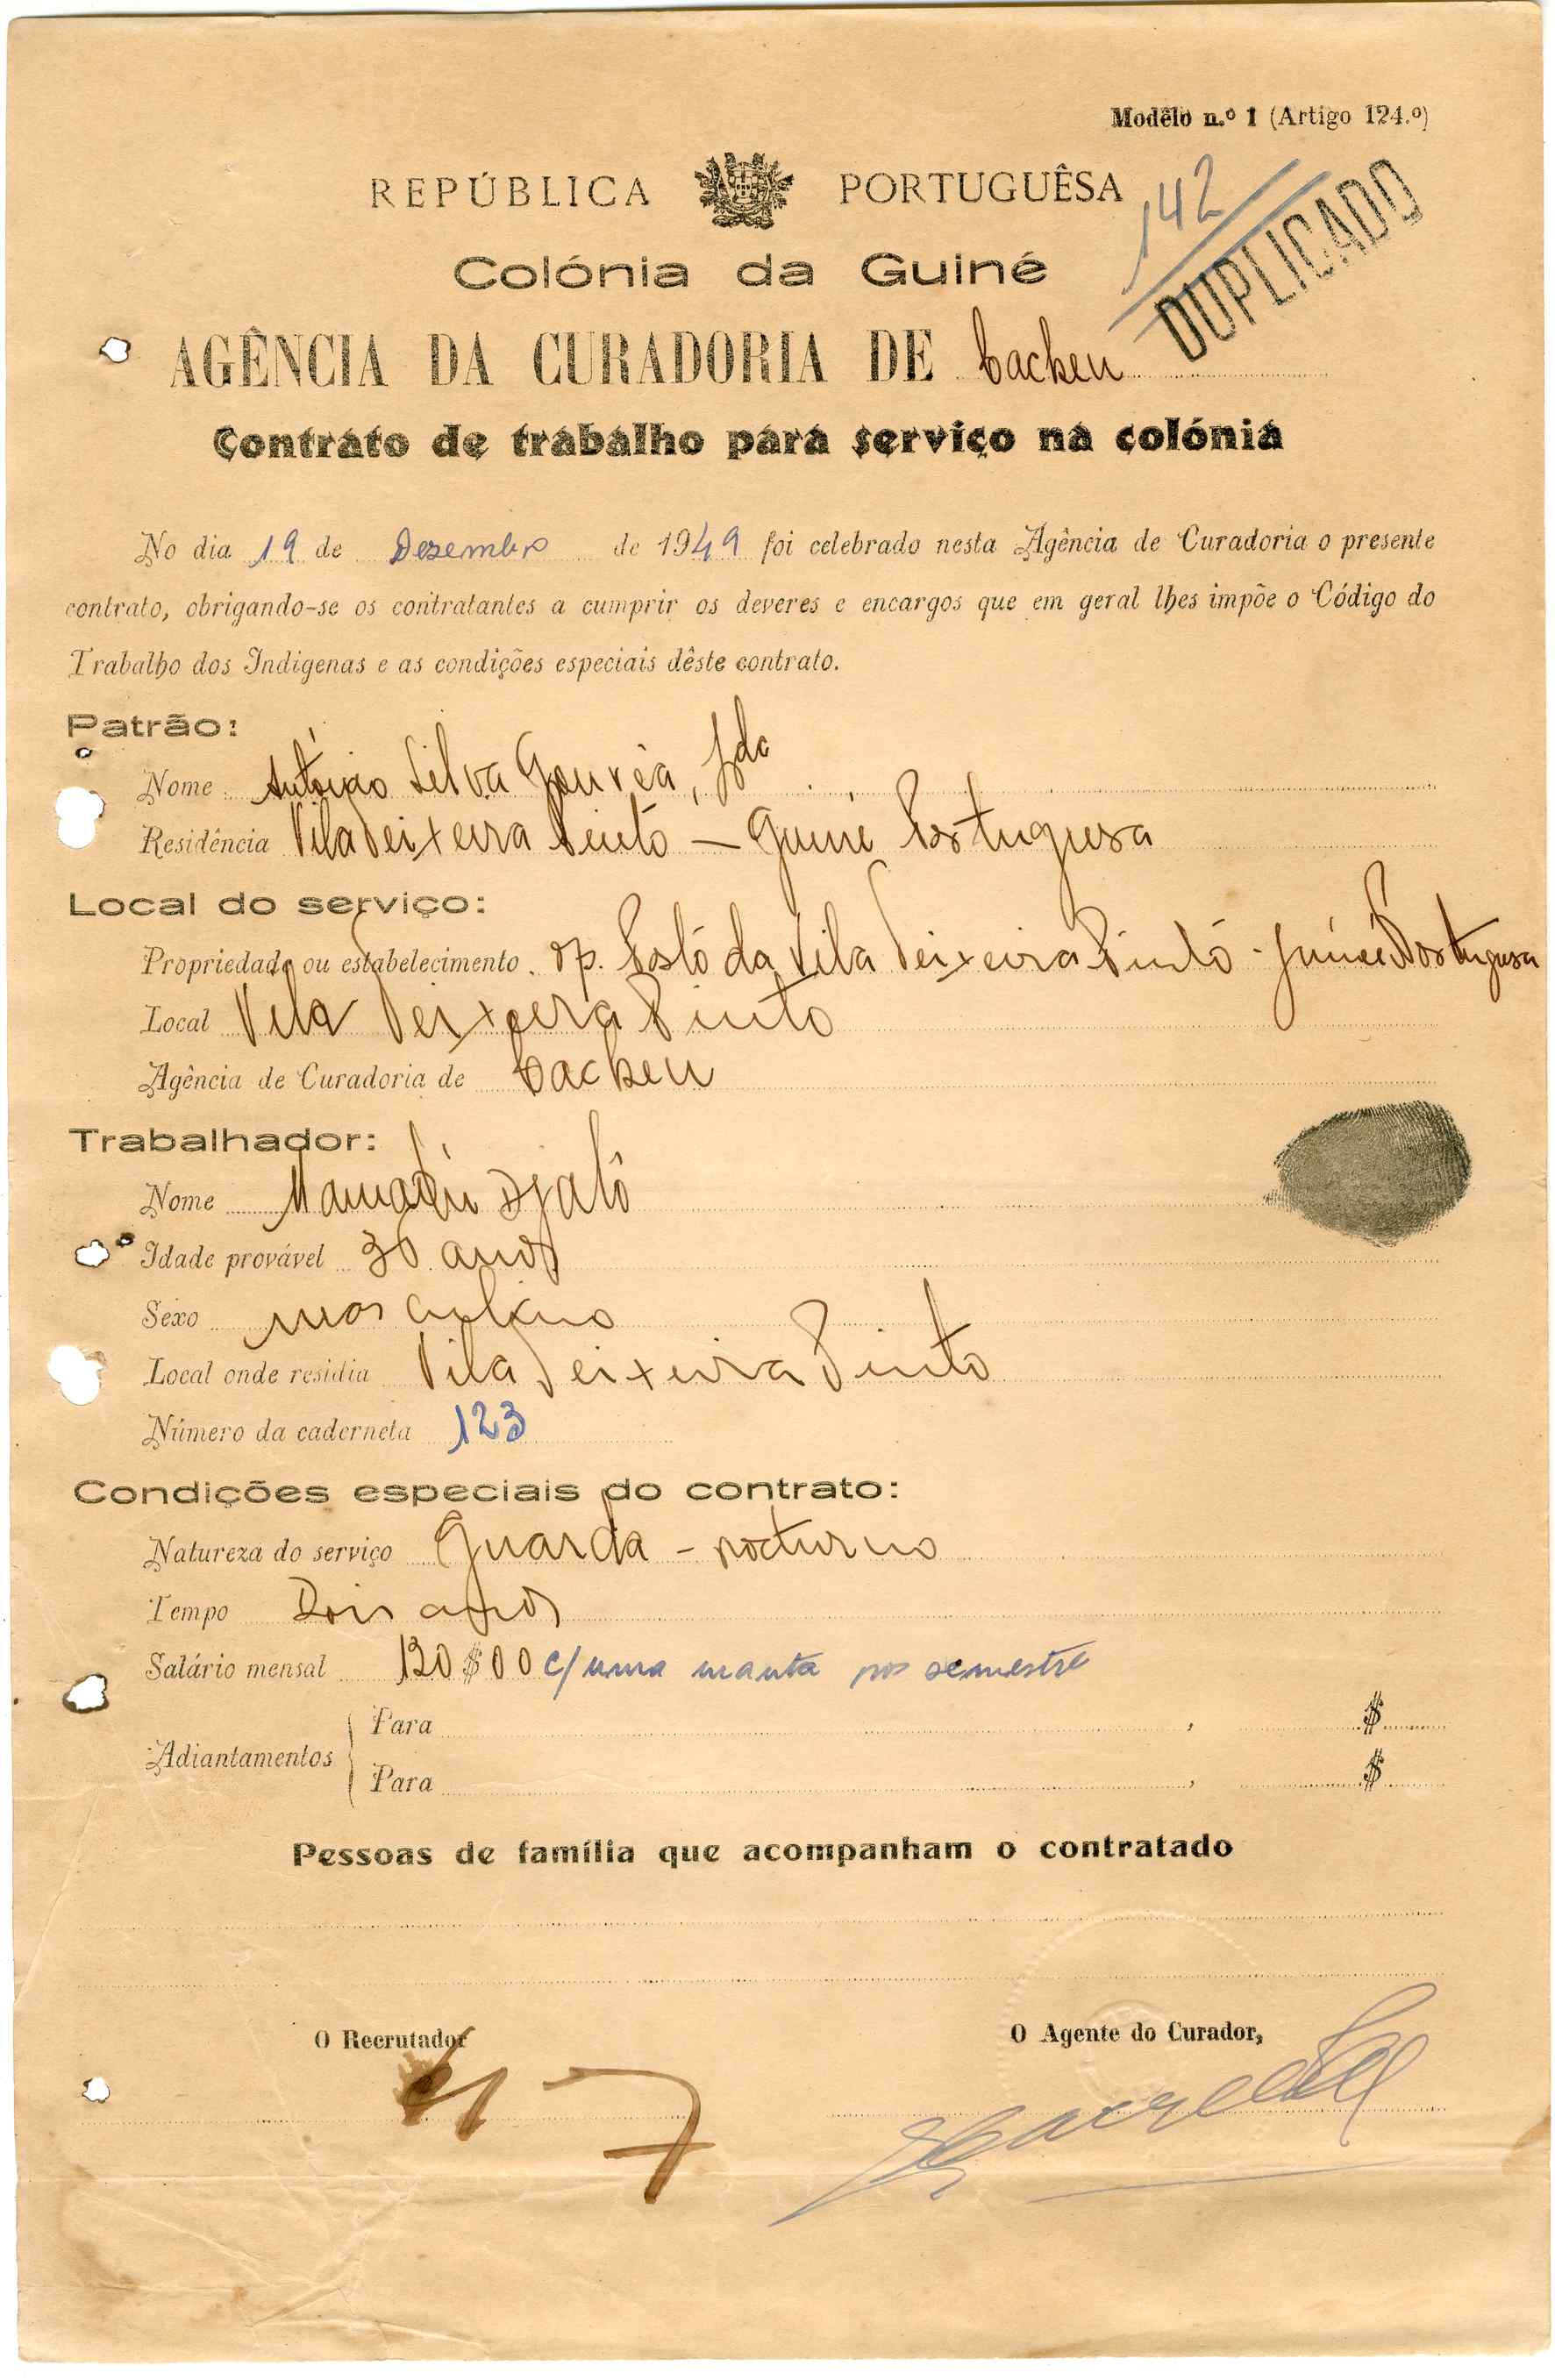 Modêlo n.º 1 (Artigo 124.º)
REPÚBLICA PORTUGUÊSA
142
DUPLICADO
Colónia da Guiné
AGÊNCIA DA CURADORIA DE Cacheu
Contrato de trabalho para serviço na colónia
No dia 19 de Dezembro de 1949 foi celebrado nesta Agência de Curadoria o presente
contrato, obrigando-se os contratantes a cumprir os deveres e encargos que em geral lhes impõe o Código do
Trabalho dos Indigenas e as condições especiais dêste contrato.
Patrão:
Nome António Silva Gouvêa, Lda
Residência Vila Teixeira Pinto — Guiné Portuguesa
Local do serviço:
Propriedade ou estabelecimento Op. Posto da Vila Teixeira Pinto - Guiné Portuguesa
Local Vila Teixeira Pinto
Agência de Curadoria de Cacheu
Trabalhador:
Nome Mamadú Djaló
Idade provável 30 anos
Sexo masculino
Local onde residia Vila Teixeira Pinto
Número da caderneta 123
Condições especiais do contrato:
Natureza do serviço Guarda - nocturno
Tempo Dois anos
Salário mensal 130$00 c/ uma manta por semestre
Adiantamentos
Para , $
Para , $
Pessoas de família que acompanham o contratado
O Recrutador
O Agente do Curador,